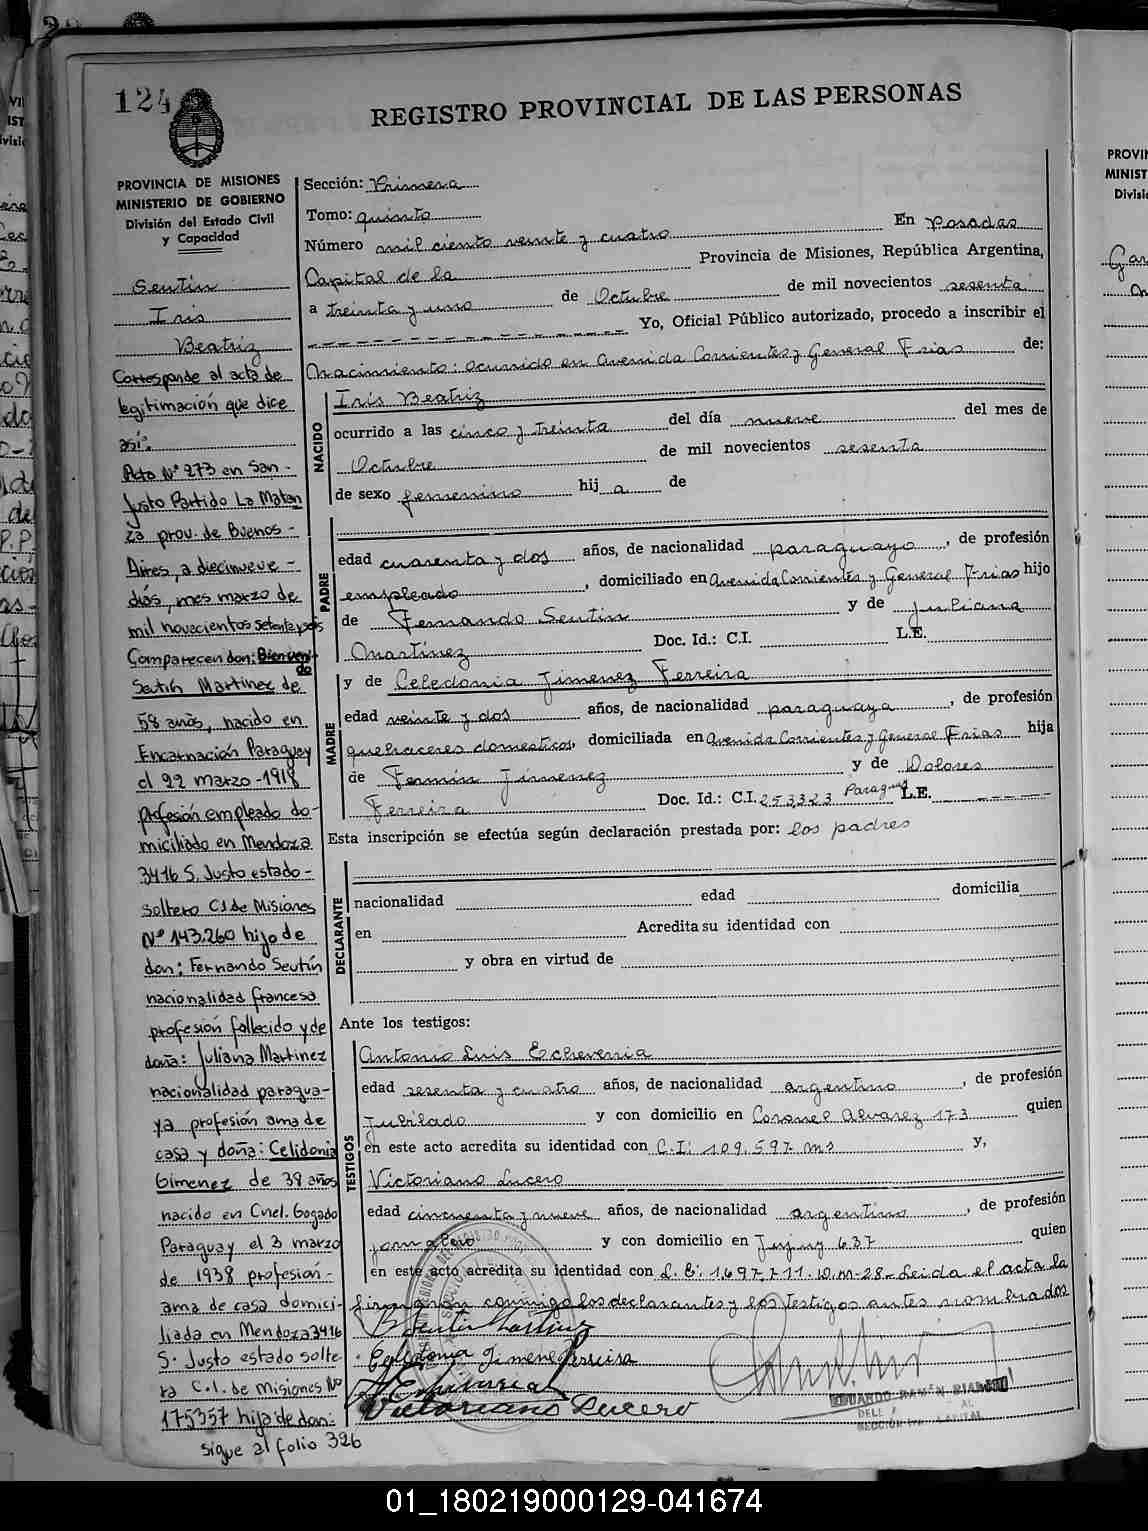 124
REGISTRO PROVINCIAL DE LAS PERSONAS
PROVINCIA DE MISIONES
MINISTERIO DE GOBIERNO
División del Estado Civil
y Capacidad
Sentin
Iris
Beatriz
Corresponde al acta de
legitimación que dice
así:
Acta Nº 273 en San-
Justo Partido La Matan
za prov. de Buenos-
Aires, a diecinueve-
días, mes marzo de
mil novecientos setenta y seis
Comparecen don: Bienvenido
Seutín Martinez de
58 años, nacido en
Encarnación Paraguay
el 22 marzo-1918
profesión empleado do-
miciliado en Mendoza
3416 S. Justo estado-
soltero C.I de Misiones
Nº 143.260 hijo de
don: Fernando Seutín
nacionalidad francesa
profesión fallecido y de
doña: Juliana Martinez
nacionalidad paragua-
ya profesión ama de
casa y doña: Celidonia
Gimenez de 38 años
nacido en Cnel. Bogado
Paraguay el 3 marzo
de 1938 profesión-
ama de casa domici-
liada en Mendoza 3416
S. Justo estado solte-
ra C.I. de Misiones Nº
175357 hija de don:
sigue al folio 326
Sección: Primera
Tomo: quinto
Número mil ciento veinte y cuatro En Posadas
Capital de la Provincia de Misiones, República Argentina,
a treinta y uno de Octubre de mil novecientos sesenta
Yo, Oficial Público autorizado, procedo a inscribir el
Nacimiento: ocurrido en Avenida Corrientes y General Frias de:
NACIDO
Iris Beatriz
ocurrido a las cinco y treinta del día nueve del mes de
Octubre de mil novecientos sesenta
de sexo femenino hij a de
PADRE
edad cuarenta y dos años, de nacionalidad paraguayo, de profesión
empleado, domiciliado en Avenida Corrientes y General Frias hijo
de Fernando Sentin y de Juliana
Martínez Doc. Id.: C.I. L.E.
MADRE
y de Celedonia Jimenez Ferreira
edad veinte y dos años, de nacionalidad paraguaya, de profesión
quehaceres domesticos, domiciliada en Avenida Corrientes y General Frias hija
de Fermin Jimenez y de Dolores
Ferreira Doc. Id.: C.I. 253323 Paraguay L.E.
Esta inscripción se efectúa según declaración prestada por: los padres
DECLARANTE
nacionalidad edad domicilia
en Acredita su identidad con
y obra en virtud de
Ante los testigos:
TESTIGOS
Antonio Luis Echeverria
edad sesenta y cuatro años, de nacionalidad argentino, de profesión
Jubilado y con domicilio en Coronel Alvarez 173 quien
en este acto acredita su identidad con C.I: 109.597 Ms y,
Victoriano Lucero
edad cincuenta y nueve años, de nacionalidad argentino, de profesión
jornalero y con domicilio en Jujuy 637 quien
en este acto acredita su identidad con L.E: 1.697.711.D.M-28-Leida el acta la
firmaron conmigo los declarantes y los testigos antes nombrados
B Sentin Martinez
Celedonia Jimenez Ferreira
Echeverria
Victoriano Lucero
01_180219000129-041674